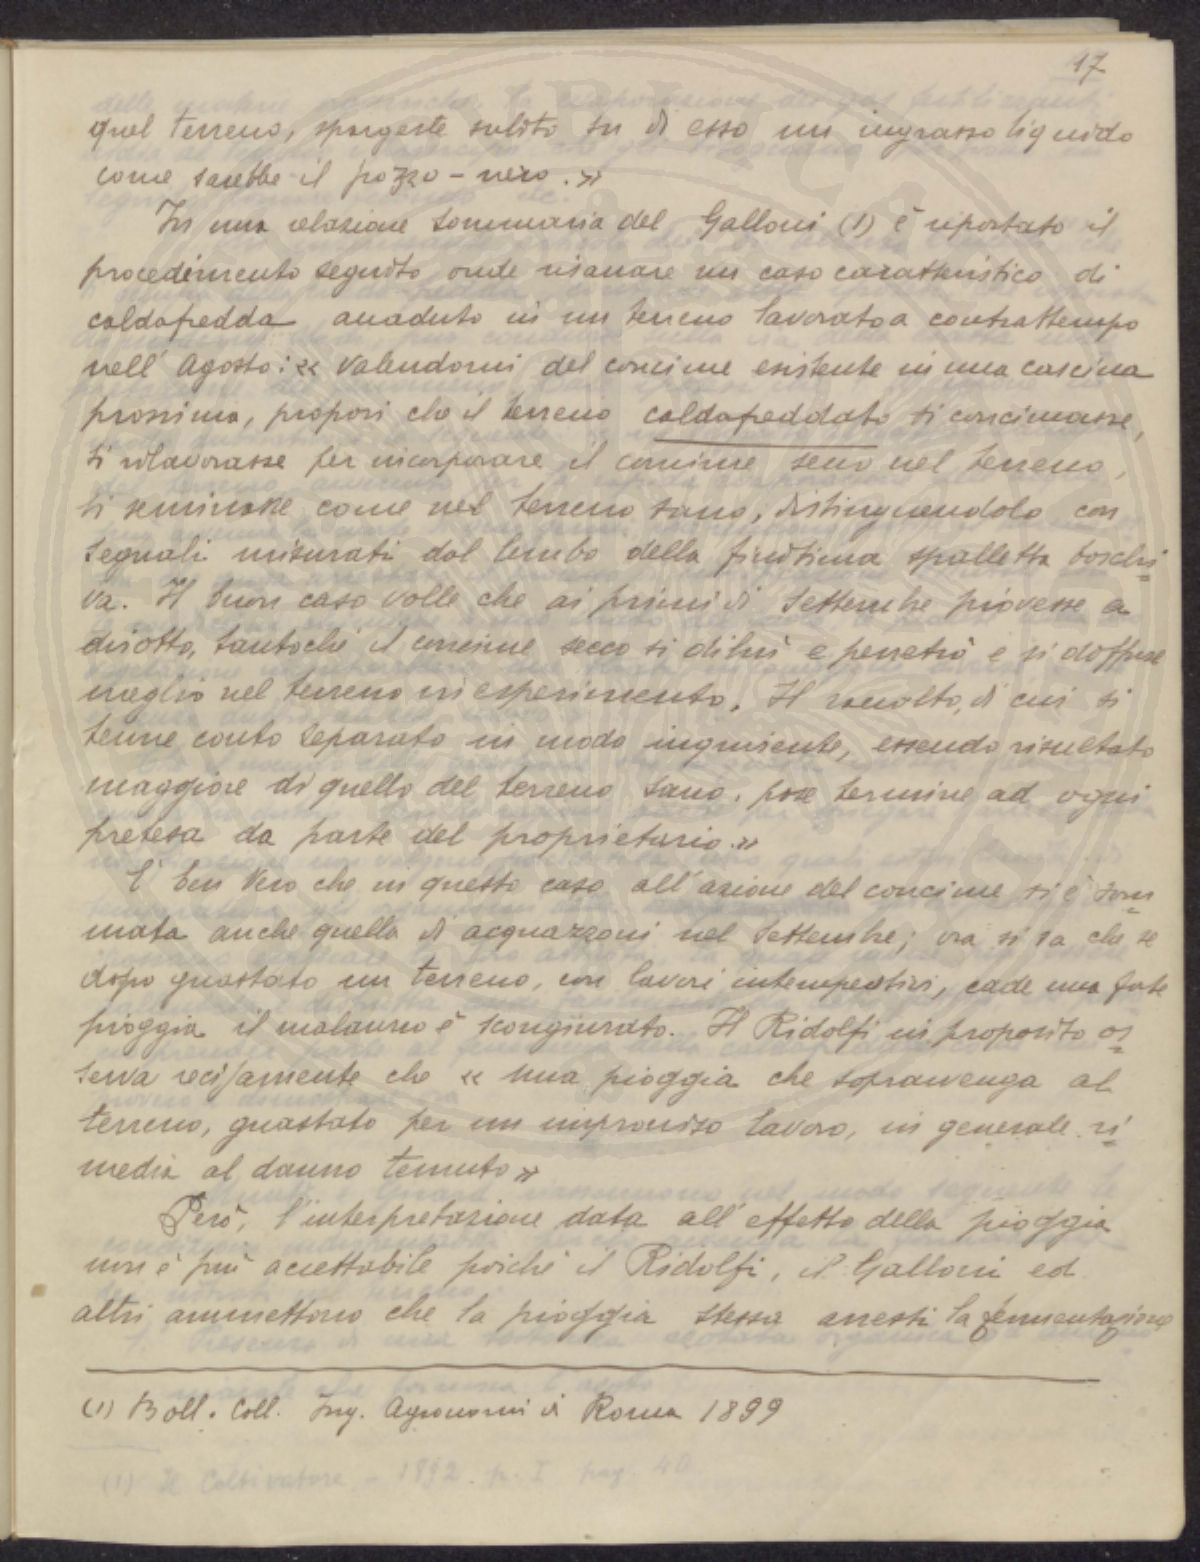 17
quel terreno, spargerte subito su di esso un ingrasso liquido
come sarebbe il pozzo-nero.»
In una relazione sommaria del Galloni (1) è riportato il
procedimento seguito onde risanare un caso caratteristico di
caldafredda accaduto in un terreno lavorato a contrattempo
nell' Agosto: « Valendomi del concime esistente in una cascina
prossima, proposi che il terreno caldafreddato si concimasse,
si rilavorasse per incorporare il concime secco nel terreno,
si seminasse come nel terreno sano, distinguendolo con
segnali misurati dal lembo della finitima spalletta boschi=
va. Il buon caso volle che ai primi di Settembre piovesse a
dirotto, tantochè il concime secco si diluì e penetrò e si diffuse
meglio nel terreno in esperimento. Il raccolto, di cui si
tenne conto separato in modo inquirente, essendo risultato
maggiore di quello del terreno sano, pose termine ad ogni
pretesa da parte del proprietario.»
E' ben vero che in questo caso all'azione del concime si è som=
mata anche quella di acquazzoni nel Settembre; ora si sa che se
dopo guastato un terreno, con lavori intempestivi, cade una forte
pioggia il malanno è scongiurato. Il Ridolfi in proposito os=
serva recisamente che « una pioggia che sopravvenga al
terreno, guastato per un improvviso lavoro, in generale ri=
media al danno temuto»
Però, l'interpretazione data all'effetto della pioggia
non è più accettabile poichè il Ridolfi, il Galloni ed
altri ammettono che la pioggia stessa arresti la fermentazione
(1) Boll. Coll. Ing. Agronomi di Roma 1899
(1) Il Coltivatore - 1892. p. I pag. 40